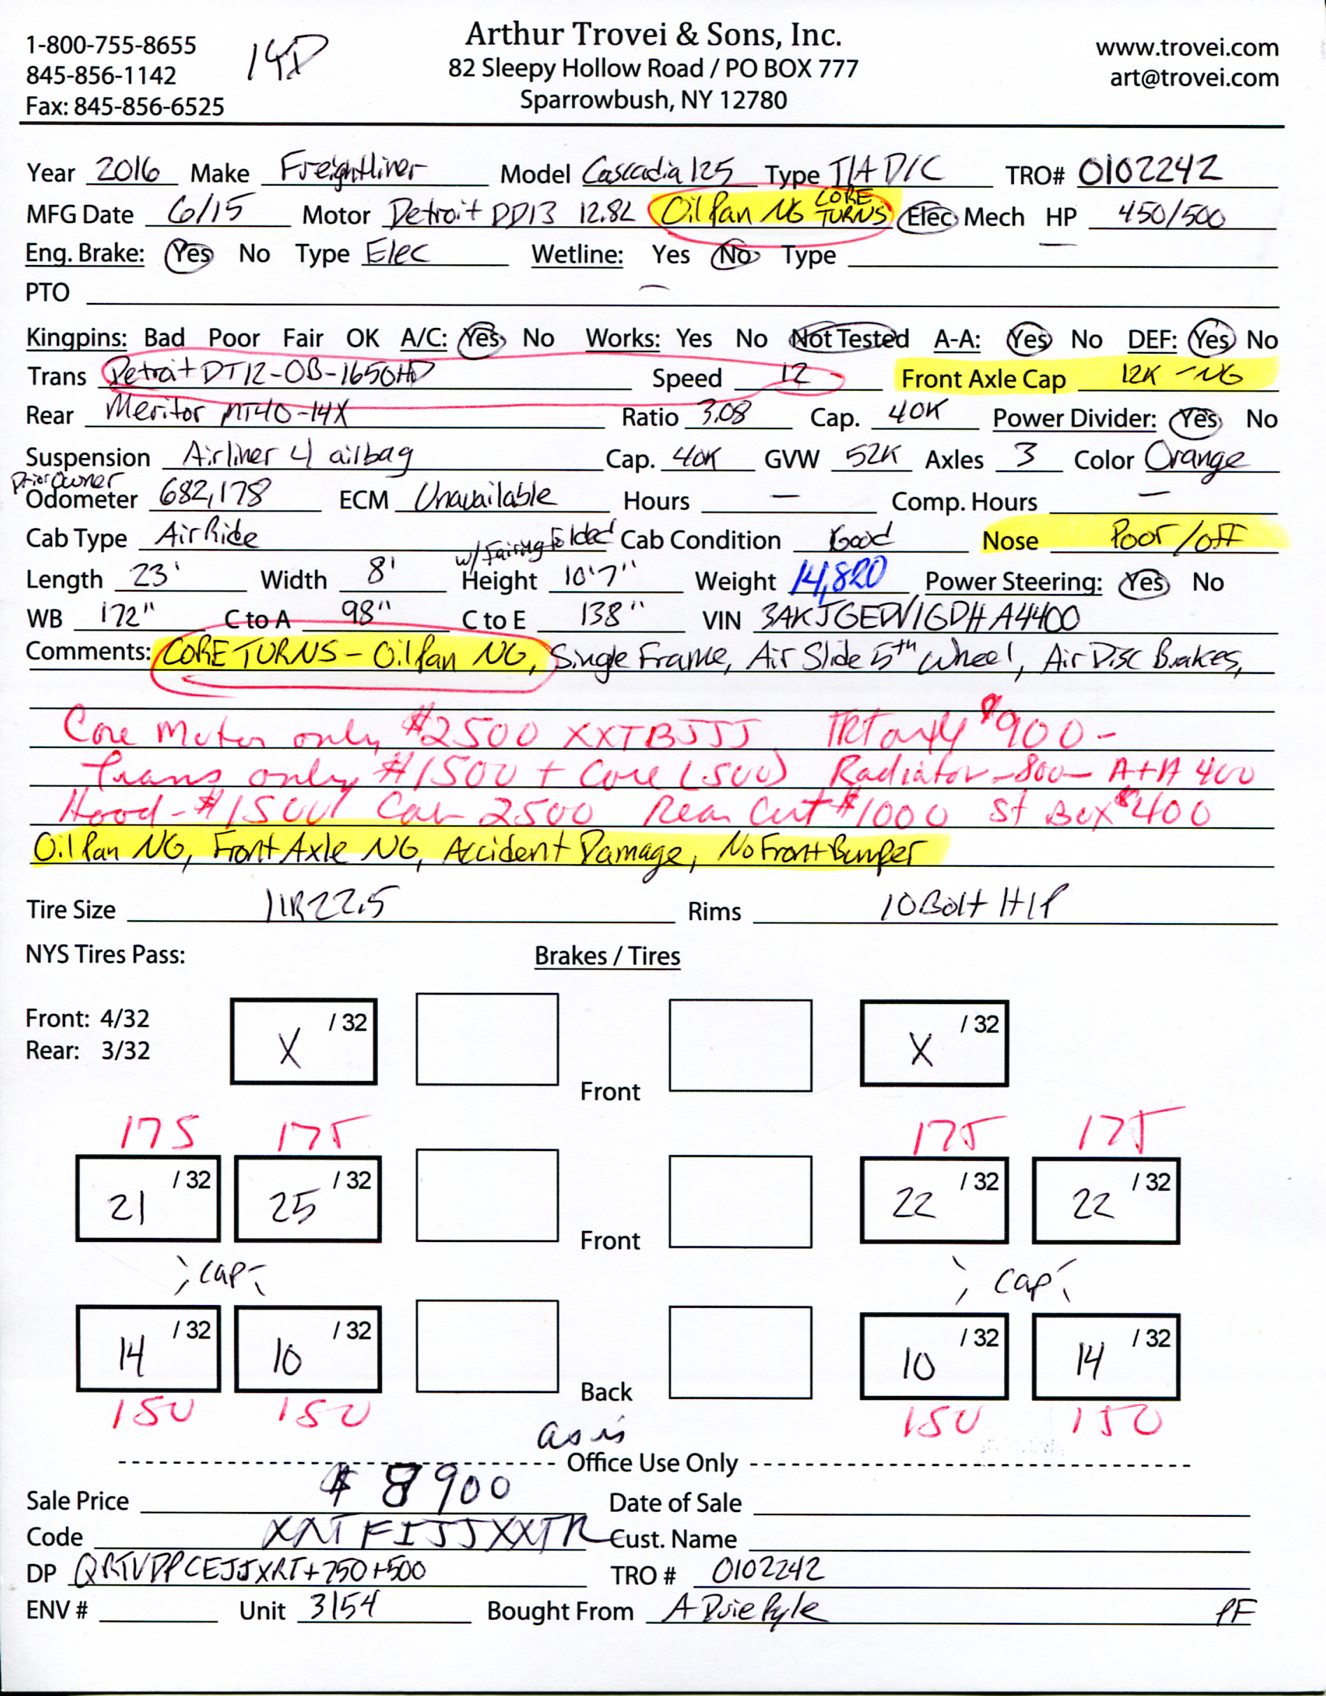 1-800-755-8655
845-856-1142
Fax: 845-856-6525
14D
Arthur Trovei & Sons, Inc.
82 Sleepy Hollow Road / PO BOX 777
Sparrowbush, NY 12780
www.trovei.com
art@trovei.com
Year 2016 Make Freightliner Model Cascadia 125 Type T/A D/C TRO# 0102242
MFG Date 6/15 Motor Detroit DD13 12.8L Oil Pan NG CORE TURNS Elec Mech HP 450/500
Eng. Brake: Yes No Type Elec Wetline: Yes No Type
PTO
Kingpins: Bad Poor Fair OK A/C: Yes No Works: Yes No Not Tested A-A: Yes No DEF: Yes No
Trans Detroit DT12-OB-1650HD Speed 12 Front Axle Cap 12K - NG
Rear Meritor MT40-14X Ratio 3.08 Cap. 40K Power Divider: Yes No
Suspension Airliner 4 airbag Cap. 40K GVW 52K Axles 3 Color Orange
Prior Owner
Odometer 682,178 ECM Unavailable Hours — Comp. Hours —
Cab Type Air Ride Cab Condition Good Nose Poor/off
w/ Fairing Folded
Length 23' Width 8' Height 10'7" Weight 14,820 Power Steering: Yes No
WB 172" C to A 98" C to E 138" VIN 3AKJGEDV1GDHA4400
Comments: CORE TURNS - Oil Pan NG, Single Frame, Air Slide 5th Wheel, Air Disc Brakes,
Core Motor only $2500 XXTBJJJ only $900-
Trans only $1500 + Core (500) Radiator-800- A+A 400
Hood-$1500 Cab 2500 Rear Cut $1000 St Box $400
Oil Pan NG, Front Axle NG, Accident Damage, No Front Bumper
Tire Size 11R22.5 Rims 10 Bolt H/P
NYS Tires Pass: Brakes / Tires
Front: 4/32
Rear: 3/32
X /32 X /32
Front
175 175 175 175
21 /32 25 /32 22 /32 22 /32
Front
cap cap
14 /32 10 /32 10 /32 14 /32
Back
150 150 150 150
as is
Office Use Only
Sale Price $8900 Date of Sale
Code XNTFIJJXXTR Cust. Name
DP QRTVDPCEJJXRT+750+500 TRO # 0102242
ENV # Unit 3154 Bought From A Duie Pyle PF